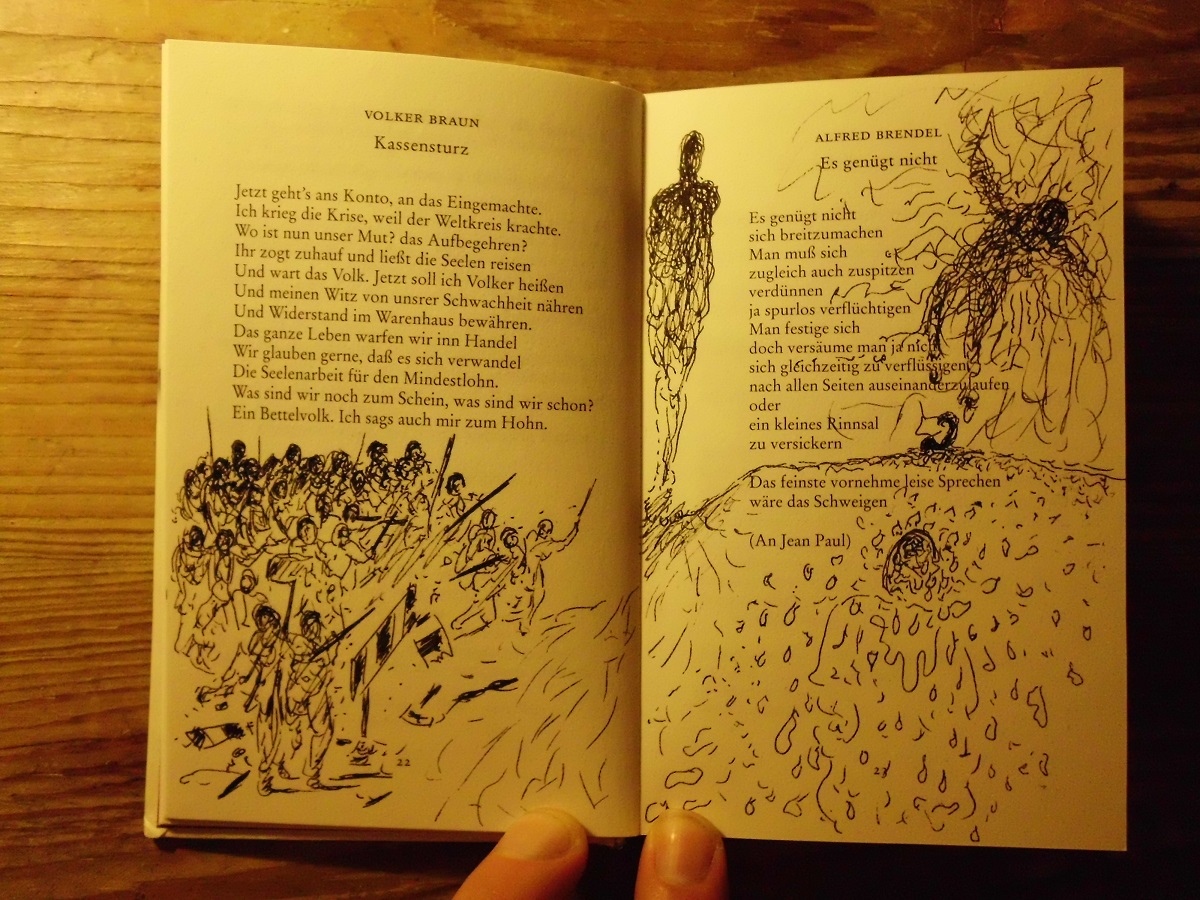 VOLKER BRAUN
Kassensturz
Jetzt geht's ans Konto, an das Eingemachte.
Ich krieg die Krise, weil der Weltkreis krachte.
Wo ist nun unser Mut? das Aufbegehren?
Ihr zogt zuhauf und ließt die Seelen reisen
Und wart das Volk. Jetzt soll ich Volker heißen
Und meinen Witz von unsrer Schwachheit nähren
Und Widerstand im Warenhaus bewähren.
Das ganze Leben warfen wir inn Handel
Wir glauben gerne, daß es sich verwandel
Die Seelenarbeit für den Mindestlohn.
Was sind wir noch zum Schein, was sind wir schon?
Ein Bettelvolk. Ich sags auch mir zum Hohn.
22
ALFRED BRENDEL
Es genügt nicht
Es genügt nicht
sich breitzumachen
Man muß sich
zugleich auch zuspitzen
verdünnen
ja spurlos verflüchtigen
Man festige sich
doch versäume man ja nicht
sich gleichzeitig zu verflüssigen
nach allen Seiten auseinanderzulaufen
oder
ein kleines Rinnsal
zu versickern
Das feinste vornehme leise Sprechen
wäre das Schweigen
(An Jean Paul)
23